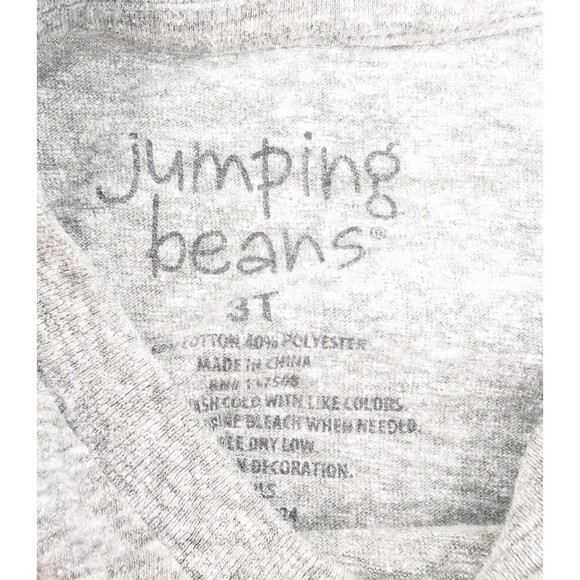 jumping
beans®
3T
COTTON 40% POLYESTER
MADE IN CHINA
COLD WITH LIKE COLORS.
BLEACH WHEN NEEDED.
DRY LOW.
DECORATION.